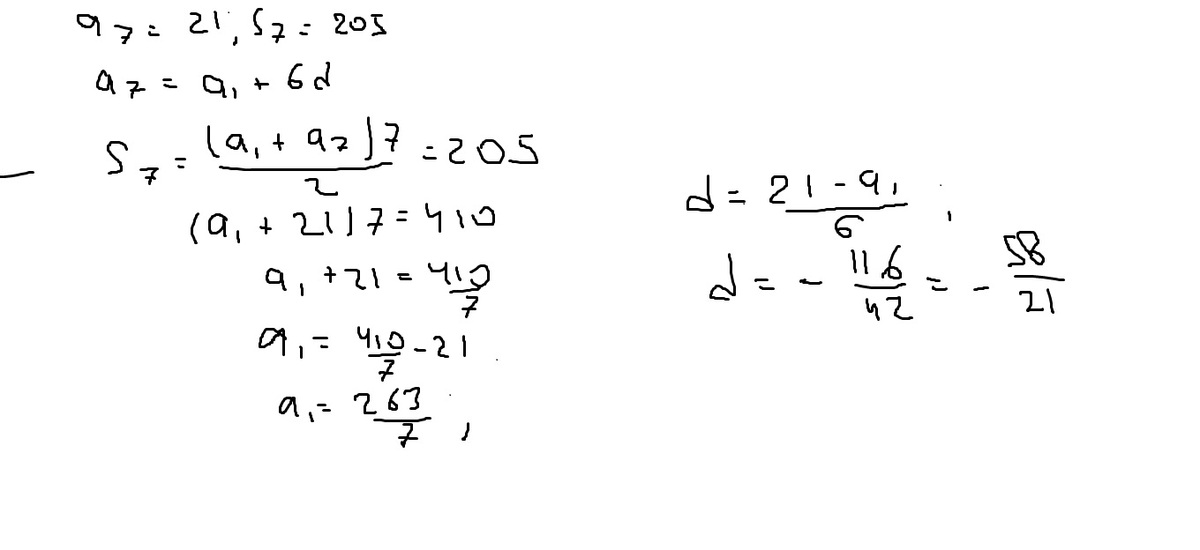 a₇ = 21, S₇ = 205
a₇ = a₁ + 6d
S₇ = (a₁ + a₇)7/2 = 205
(a₁ + 21)7 = 410
a₁ + 21 = 410/7
a₁ = 410/7 - 21
a₁ = 263/7 ,
d = 21 - a₁/6 ;
d = - 116/42 = - 58/21